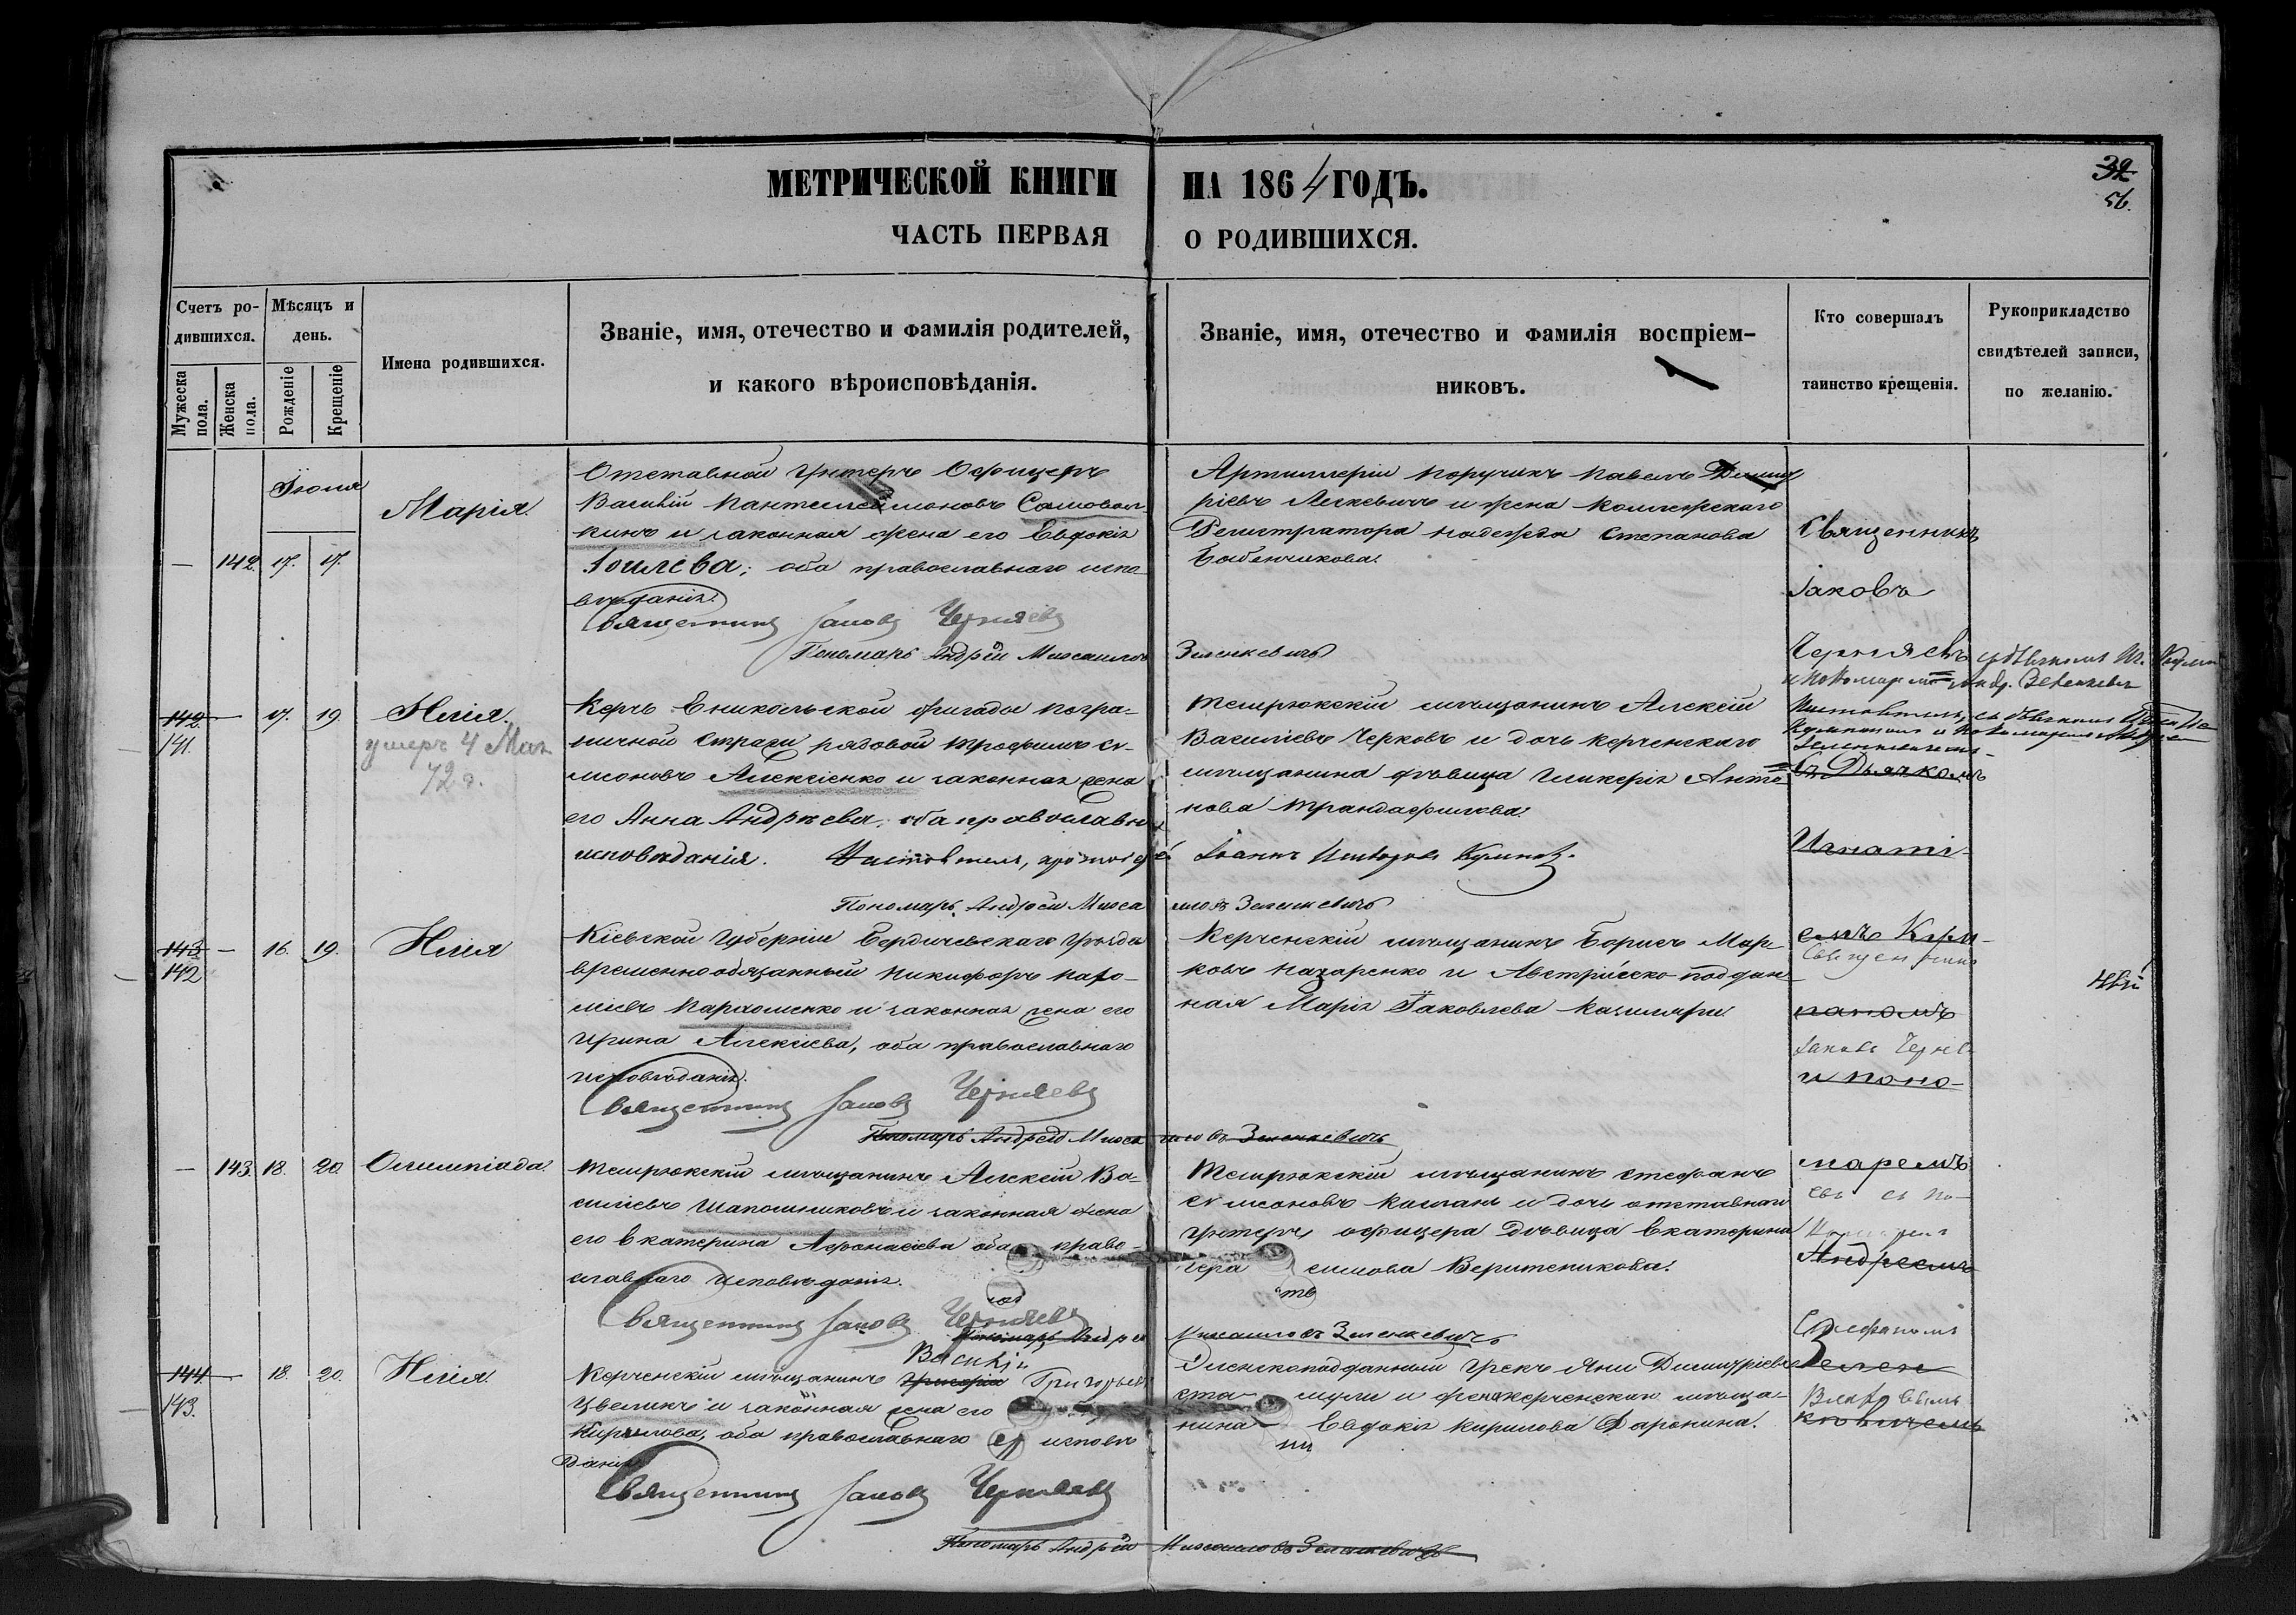 МЕТРИЧЕСКОЙ КНИГИ НА 1864 ГОДЪ.
32
56.
ЧАСТЬ ПЕРВАЯ О РОДИВШИХСЯ.
Счетъ ро-
дившихся.
Мужеска пола.
Женска пола.
Мѣсяцъ и
день.
Рожденіе
Крещеніе
Имена родившихся.
Званіе, имя, отечество и фамилія родителей,
и какого вѣроисповѣданія.
Званіе, имя, отечество и фамилія воспріем-
никовъ.
Кто совершалъ
таинство крещенія.
Рукоприкладство
свидѣтелей записи,
по желанію.
Іюля
— 142. 17. 17.
Марія.
Отставной Унтеръ Офицеръ
Василій Пантелеймоновъ Самовал-
кинъ и законная жена его Евдокія
оба православнаго испо-
вѣданія.
Священникъ Іаковъ Черняевъ
Пономарь Андрей Михаиловъ Зеленкевичъ
Артиллеріи Поручикъ Павелъ Димит
ріевъ Лескевичъ и жена Коллежскаго
Регистратора Надежда Степанова
Бабенчикова.
Священникъ
Іаковъ
Черняевъ
142 — 17. 19.
141.
Илія.
умеръ 4 Мая
72 г.
Керчь Еникольской бригады погра-
ничной Стражи рядовой Трофимъ Си-
меоновъ Алексіенко и законная жена
его Анна Андреева, оба православн
исповѣданія.
Пономарь Андрей Михаиловъ Зеленкевичъ
Темрюкскій мѣщанинъ Алексій
Василіевъ Черковъ и дочь Керченскаго
мѣщанина дѣвица Гликерія Анто-
нова Трандафилова.
съ Дьячкомъ
Игнаті-
143 — 16. 19.
142
Илія
Кіевской Губерніи Бердичевскаго Уѣзда
временнообязанный Никифоръ
Пархоменко и законная жена его
Ирина Алексіева, оба православнаго
исповѣданія.
Священникъ Іаковъ Черняевъ
Пономарь Андрей Михаиловъ Зеленкевичъ
Керченскій мѣщанинъ Борисъ Мар-
ковъ Назаренко и Австрійско-поддан-
ная Марія Іаковлева
емъ
Священникъ
и поно-
— 143. 18. 20.
Олимпіада.
Темрюкскій мѣщанинъ Алексій Ва-
силіевъ Шапошниковъ и законная жена
его Екатерина Афонасіева оба право-
славнаго исповѣданія.
Священникъ Іаковъ Черняевъ
Пономарь Андрей Михаиловъ Зеленкевичъ
Темрюкскій мѣщанинъ Стефанъ
Симеоновъ и дочь отставнаго
Унтеръ офицера Дѣвица Екатерина
маремъ
Андреемъ
144 — 18. 20.
143.
Илія.
Василій
Керченскій мѣщанинъ Григорьевъ
Цвеликъ и законная жена его
Кирилова, оба православнаго исповѣ
данія
Священникъ Іаковъ Черняевъ
Пономарь Андрей Михаиловъ Зеленкевичъ
Еленскоподданный Грекъ Яни Димитріевъ
и жена Керченскаго мѣща-
нина Евдокія Кирилова
Стефаномъ
Зелен
кевичемъ